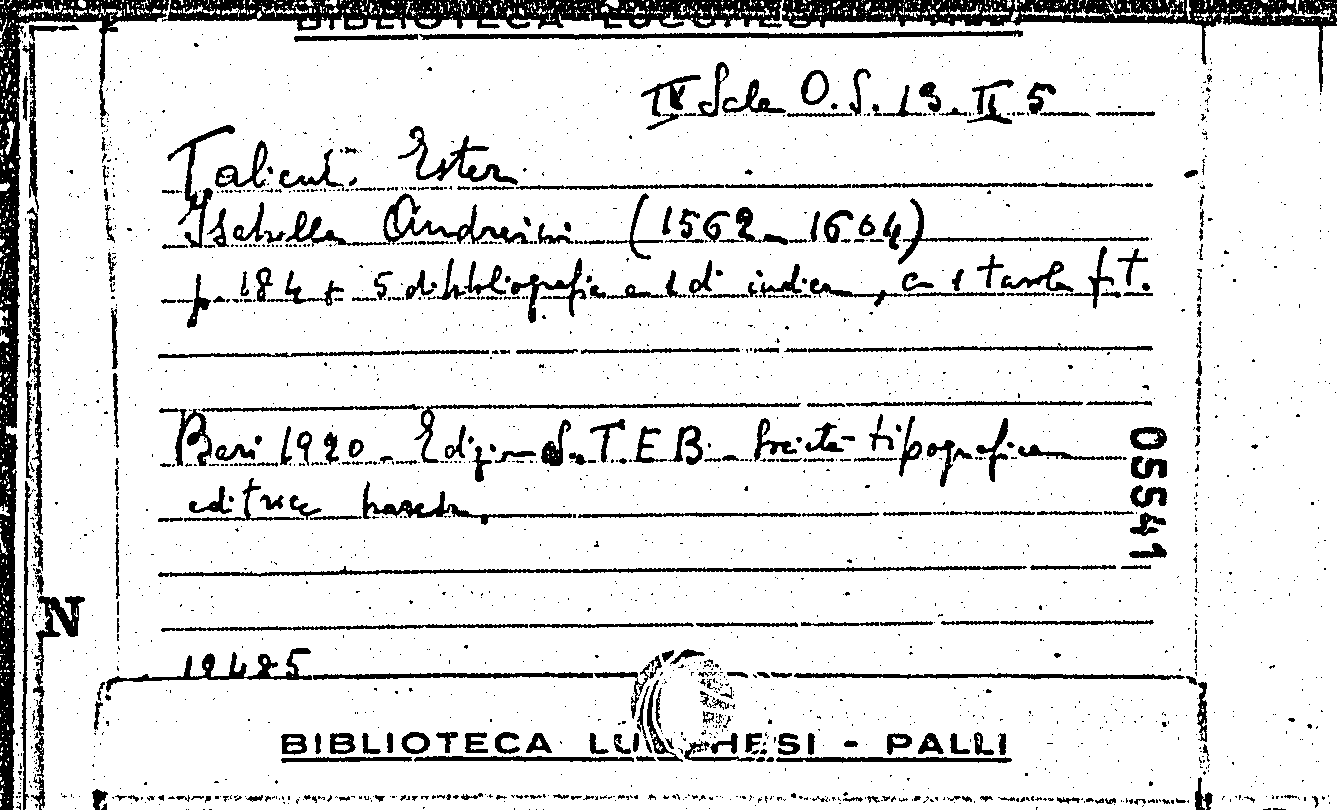 BIBLIOTECA LUCCHESI - PALLI
IV Sala O.S. 13. II 5
Talienti Ester
Isabella Andreini (1562 - 1604)
p. 184 + 5 di bibliografia e 1 di indice, con 1 tavola f.t.
Bari 1920 - Edizione S.T.E.B. - Società tipografica
editrice barese.
05541
N
19485
BIBLIOTECA LUCCHESI - PALLI